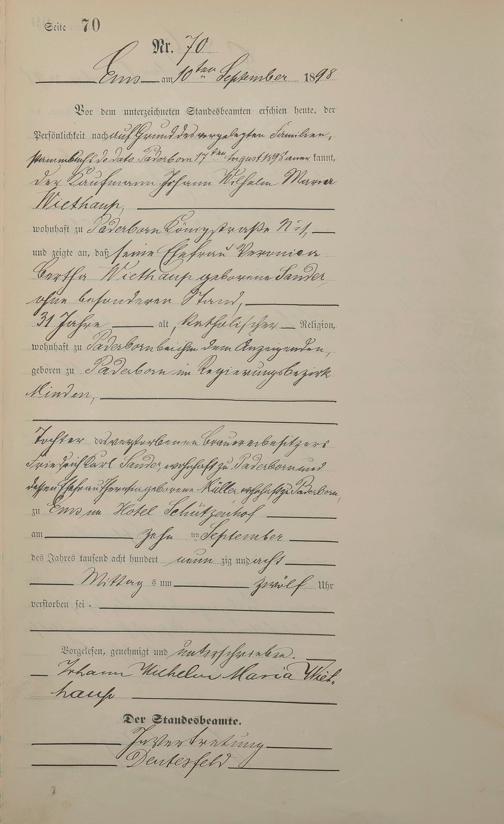 Seite 70
Nr. 70
Ems am 10ten September 1898
Vor dem unterzeichneten Standesbeamten erschien heute, der
Persönlichkeit nach auf Grund des vorgelegten Familien,
stammbuchs de dato Paderborn 17ten August 1895 anerkannt,
der Kaufmann Johann Wilhelm Maria
Wiethaup,
wohnhaft zu Paderborn Königstraße
und zeigte an, daß seine Ehefrau Veronica
Bertha Wiethaup geborene Sander
ohne besonderen Stand,
31 Jahre alt, katholischer Religion,
wohnhaft zu Paderborn bei ihm dem Anzeigenden,
geboren zu Paderborn im Regierungsbezirk
Minden,
Tochter des verstorbenen Brauereibesitzers
Friedrich Karl Sander wohnhaft zu Paderborn und
dessen Ehefrau geborene wohnhaft zu Paderborn,
zu Ems im Hotel Schützenhof
am zehn ten September
des Jahres tausend acht hundert neun zig und acht
Mittag s um zwölf Uhr
verstorben sei.
Vorgelesen, genehmigt und unterschrieben.
Johann Wilhelm Maria Wiet-
haup
Der Standesbeamte.
In Vertretung